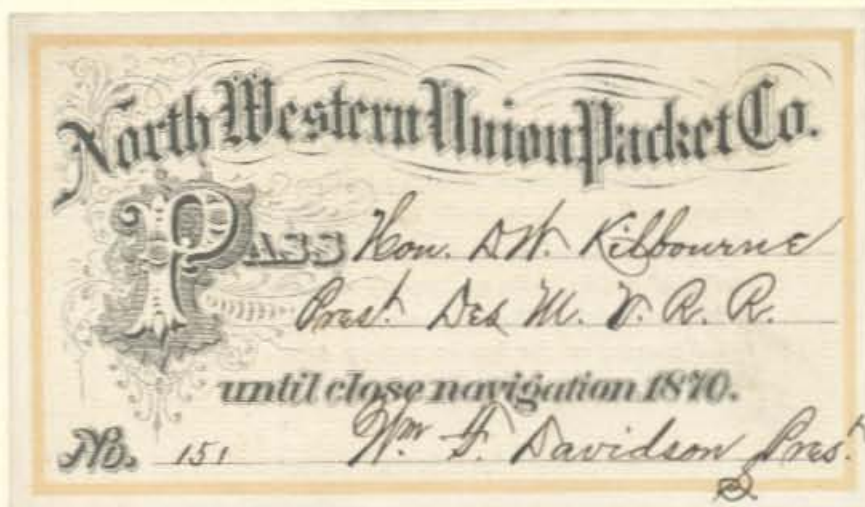 North Western Union Packet Co.
PASS Hon. D.W. Kilbourne
Prest. Des M. V. R. R.
until close navigation 1870.
No. 151 Wm. F. Davidson Prest.